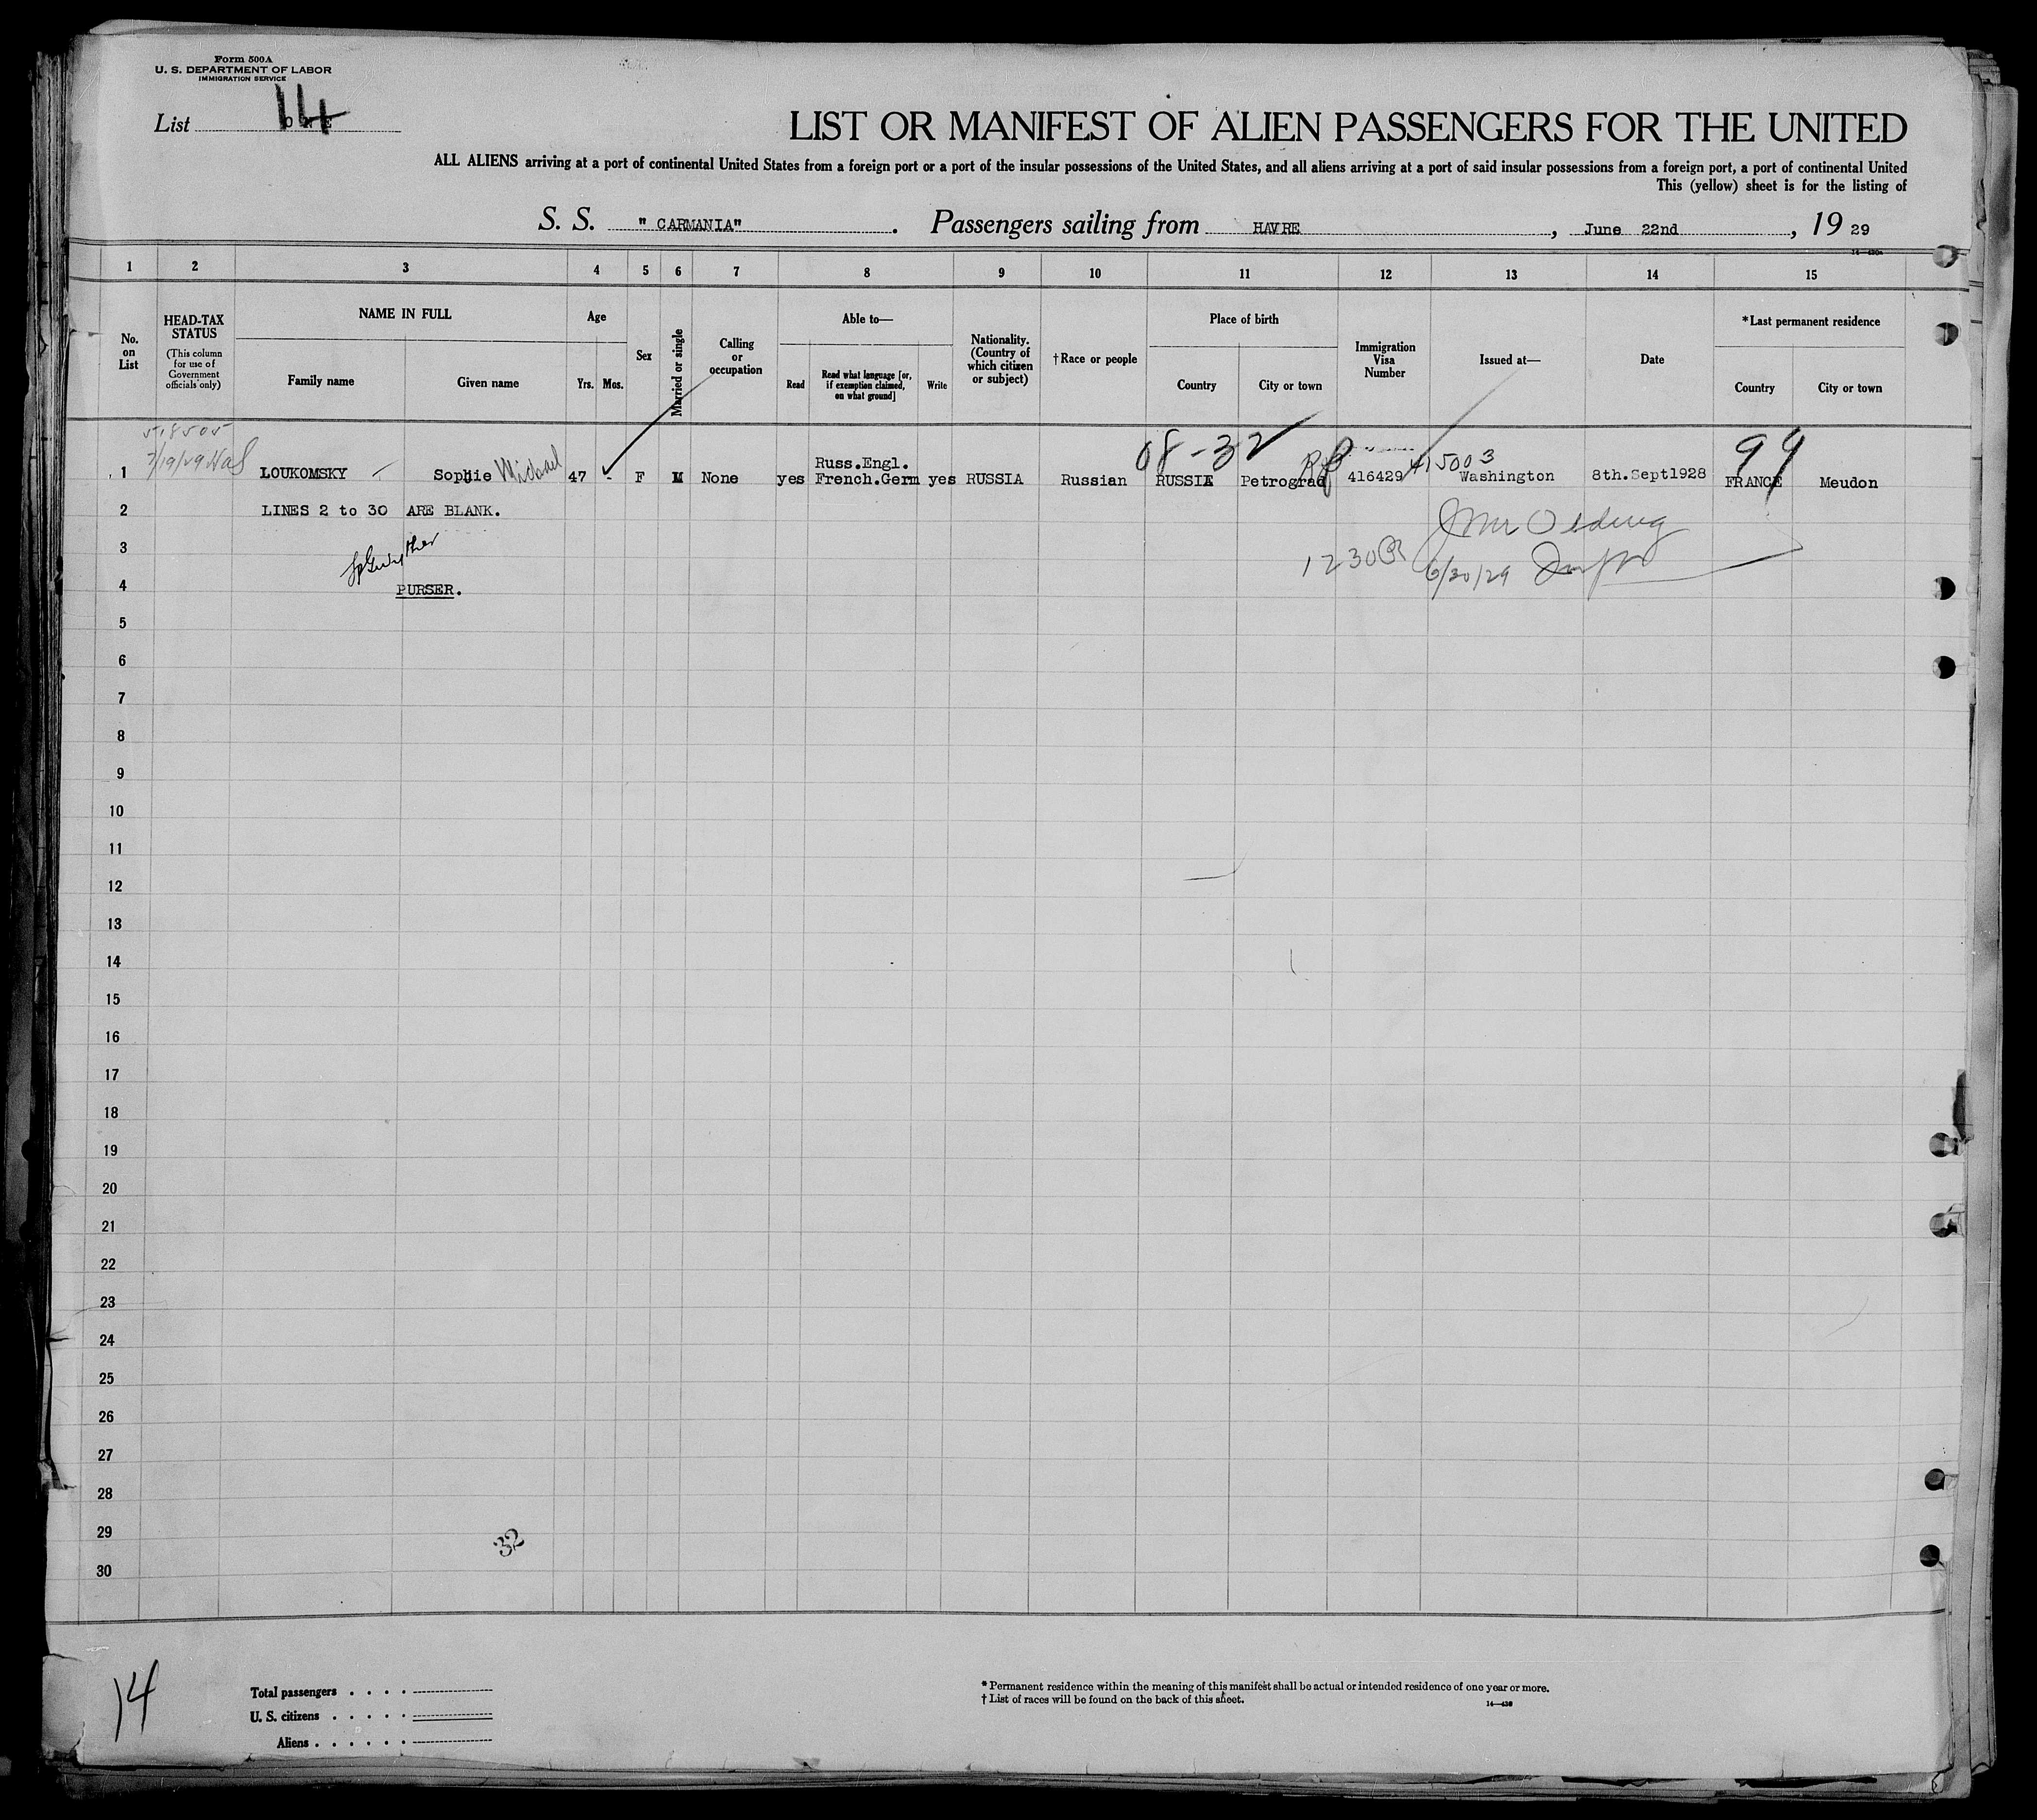 Form 500A
U. S. DEPARTMENT OF LABOR
IMMIGRATION SERVICE
List 14
LIST OR MANIFEST OF ALIEN PASSENGERS FOR THE UNITED
ALL ALIENS arriving at a port of continental United States from a foreign port or a port of the insular possessions of the United States, and all aliens arriving at a port of said insular possessions from a foreign port, a port of continental United
This (yellow) sheet is for the listing of
S. S. " CARMANIA". Passengers sailing from HAVRE, June 22nd, 19 29
14—430a
1 2 3 4 5 6 7 8 9 10 11 12 13 14 15
No. on List
HEAD-TAX STATUS
(This column for use of Government officials only)
NAME IN FULL
Family name
Given name
Age
Yrs. Mos.
Sex
Married or single
Calling or occupation
Able to—
Read
Read what language [or, if exemption claimed, on what ground]
Write
Nationality. (Country of which citizen or subject)
†Race or people
Place of birth
Country
City or town
Immigration Visa Number
Issued at—
Date
*Last permanent residence
Country
City or town
518505
7/19/29
08-32
415003
99
1 LOUKOMSKY Sophie Michael 47 - F M None yes Russ.Engl. French.Germ yes RUSSIA Russian RUSSIA Petrograd 416429 Washington 8th.Sept1928 FRANCE Meudon
2 LINES 2 to 30 ARE BLANK.
3
1230
6/30/29
4 PURSER.
5
6
7
8
9
10
11
12
13
14
15
16
17
18
19
20
21
22
23
24
25
26
27
28
29
32
30
14
Total passengers . . . .
U. S. citizens . . . . .
Aliens . . . . . .
* Permanent residence within the meaning of this manifest shall be actual or intended residence of one year or more.
† List of races will be found on the back of this sheet.
14—430